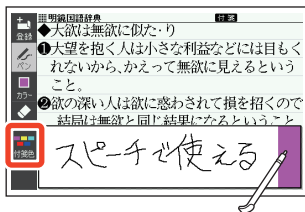 明鏡国語辞典 付箋
登録
◆大欲は無欲に似た・り
❶大望を抱く人は小さな利益などには目もく
ペン
れないから、かえって無欲に見えるという
こと。
カラー
❷欲の深い人は欲に惑わされて損を招くので
結局は無欲と同じ結果になるということ
付箋色
スピーチで使える